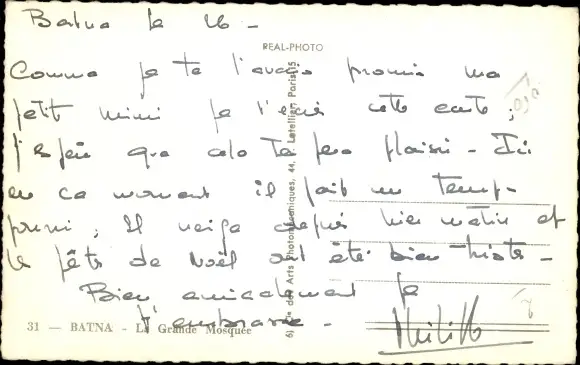 Batna le 26 -
REAL-PHOTO
Comme je te l'avais promis ma
petit mimi je t'envoi cette carte ;
j'espère que cela te fera plaisir - Ici
en ce moment il fait un temps
pourri ; Il neige depuis hier matin et
les fêtes de Noël ont été bien tristes -
Bien amicalement je
t'embrasse -
31 — BATNA - La Grande Mosquée
des Arts Photomécaniques, 44, r. Letellier Paris-15